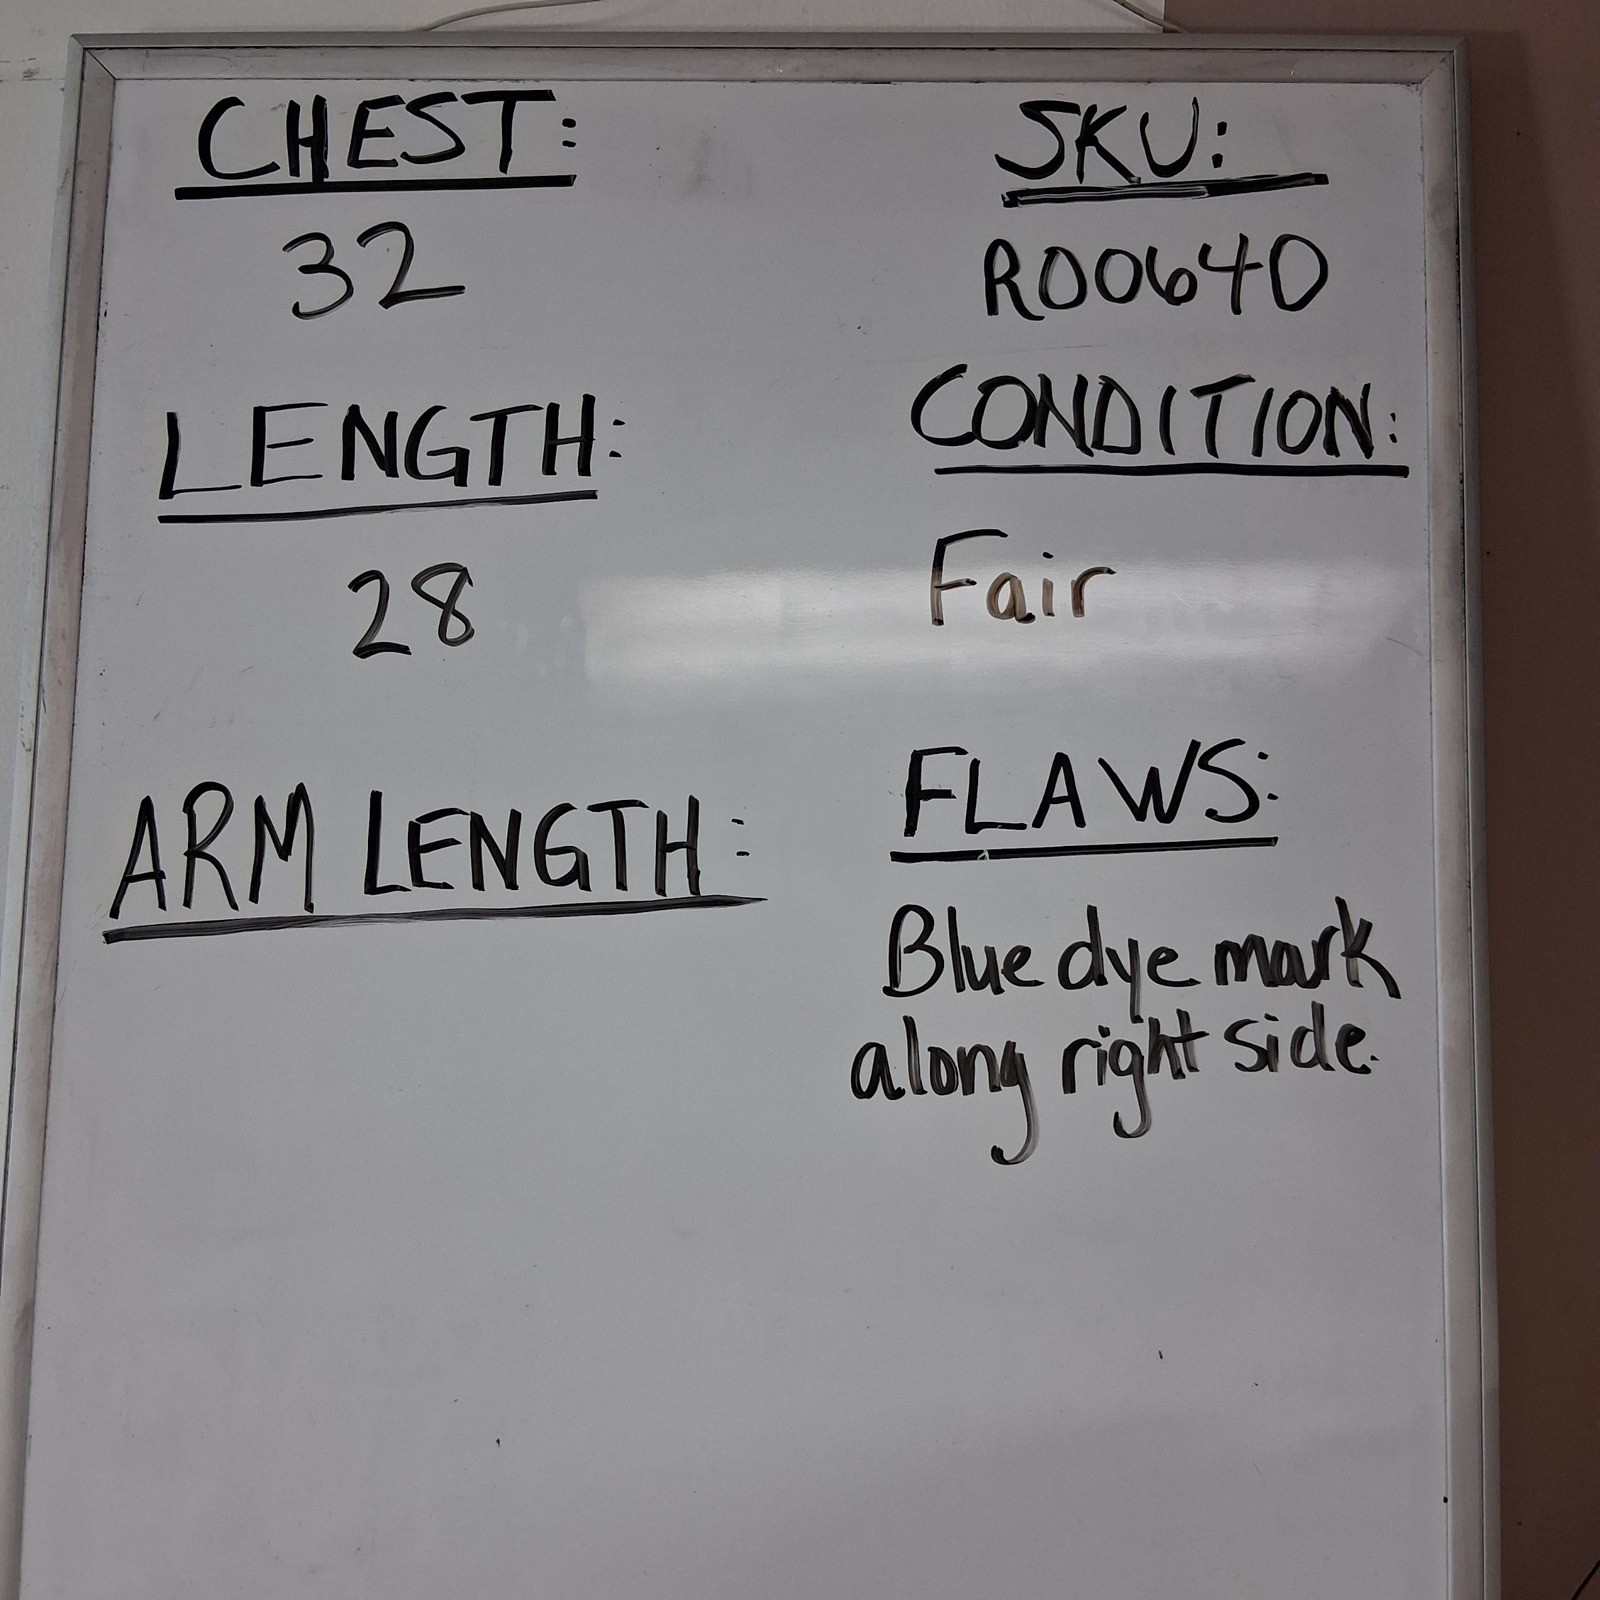 CHEST:
32
LENGTH:
28
ARM LENGTH:
SKU:
R00640
CONDITION:
Fair
FLAWS:
Blue dye mark
along right side.